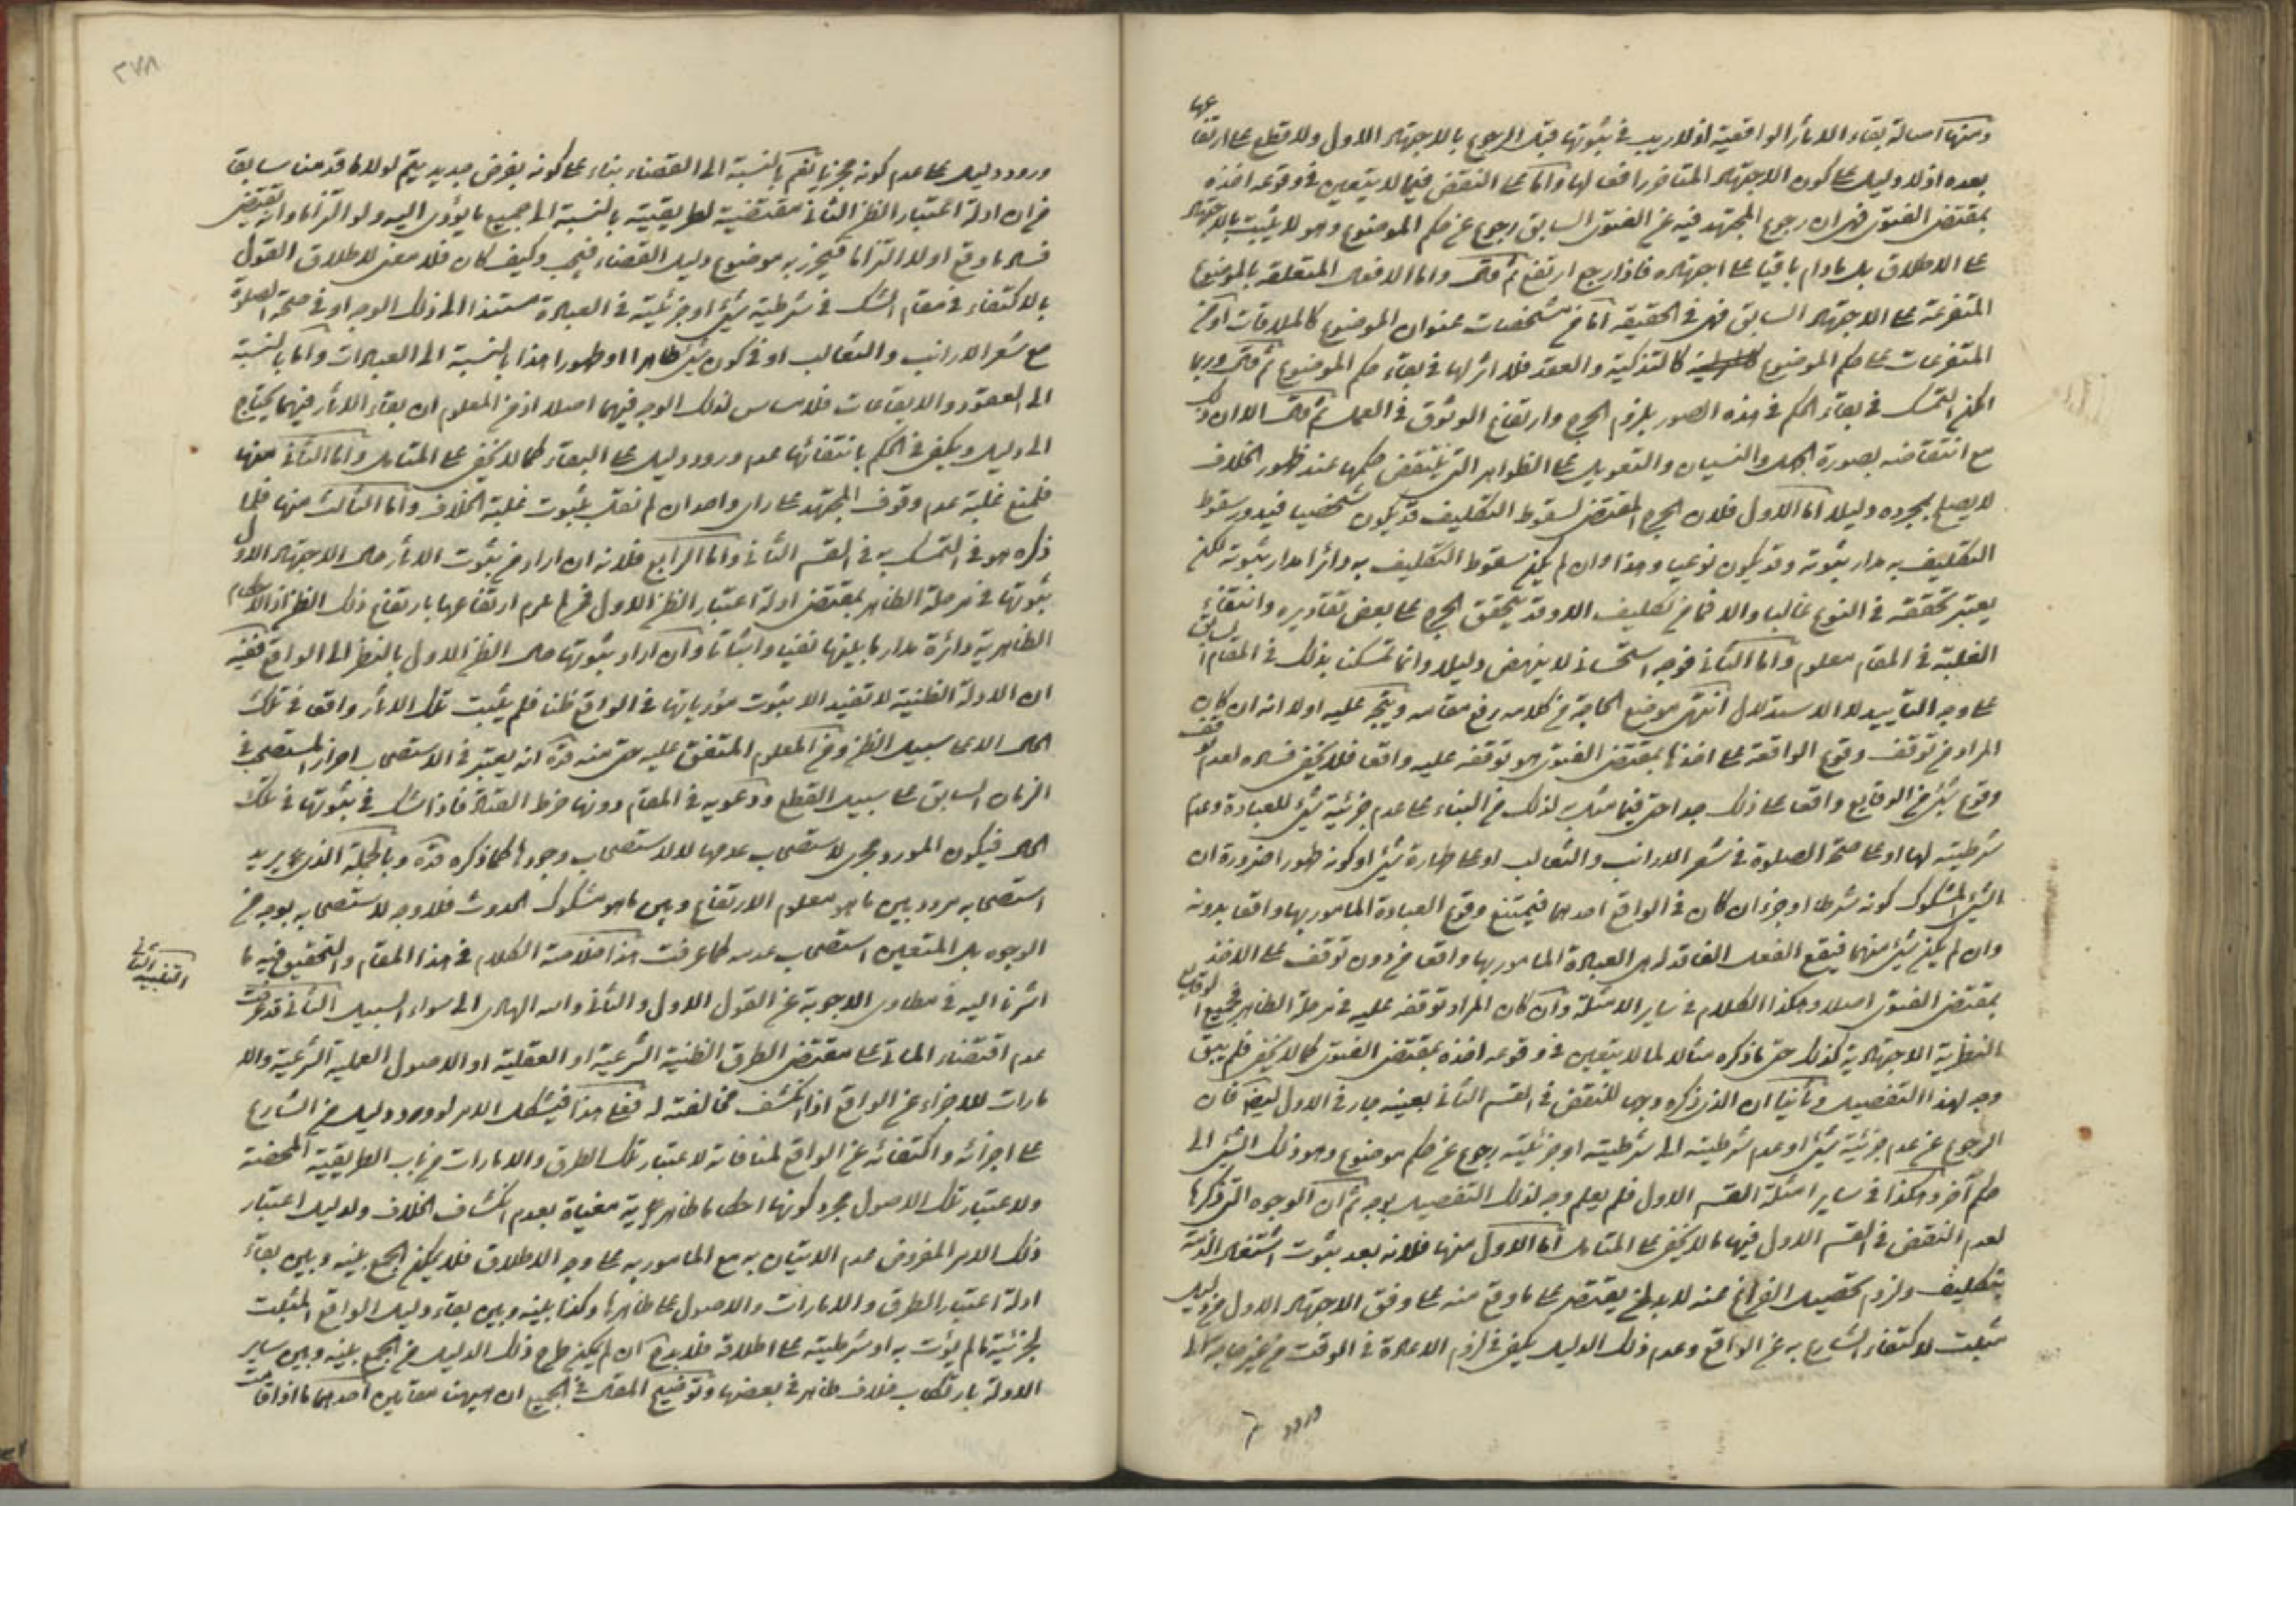 ومنها اصالة بقاء الاثار الواقعية اذ لا ريب في ثبوتها قبل الرجوع بالاجتهاد الاول ولا قطع على ارتفاعها
بعده اذ لا دليل على كون الاجتهاد المتاخر رافعا لها واما على النقض فيما لا يتعين في وقوعه اخذه
بمقتضى الفتوى فهى ان رجوع المجتهد فيه عن الفتوى السابق رجوع عن حكم الموضوع وهو لا يثبت بالاجتهاد
على الاطلاق بل ما دام باقيا على اجتهاده فاذا رجع ارتفع ثم قال واما الافعال المتعلقة بالموضوع
المتفرعة على الاجتهاد السابق فهى في الحقيقة اما من مشخصات عنوان الموضوع كالملاقات او من
المتفرعات على حكم الموضوع كالتذكية والعقد فلا اثر لها في بقاء حكم الموضوع ثم قال وربما
امكن التمسك في بقاء الحكم في هذه الصور بلزوم الحرج وارتفاع الوثوق في العمل ثم قال الا ان ذلك
مع انتقاضه بصورة الجهل والنسيان والتعويل على الظواهر التى ينتقض حكمها عند ظهور الخلاف
لا يصلح بمجرده دليلا اما الاول فلان الحرج المقتضى لسقوط التكليف قد يكون شخصيا فيدور سقوط
التكليف به مدار ثبوته وقد يكون نوعيا وهذا وان لم يكن سقوط التكليف به دائرا مدار ثبوته لكن
يعتبر تحققه في النوع غالبا والا فما من تكليف الا وقد يتحقق الحرج على بعض تقاديره وانتفاء
الغلبة في المقام معلوم واما الثاني فوجه استحساني لا ينهض دليلا وانما تمسكنا بذلك في المقام السابق
على وجه التاييد لا الاستدلال انتهى موضع الحاجة من كلامه رفع مقامه ويتجه عليه اولا انه ان كان
المراد من توقف وقوع الواقعة على اخذها بمقتضى الفتوى هو توقفه عليه واقعا فلا يخفى فساده لعدم توقف
وقوع شئ من الوقايع واقعا على ذلك جدا حتى فيما مثل به لذلك من البناء على عدم جزئية شئ للعبادة وعدم
شرطيته لها او على صحة الصلوة في شعر الارانب والثعالب او على طهارة شئ او كونه طهورا ضرورة ان
الشئ المشكوك كونه شرطا او جزءا ان كان في الواقع احدهما فيمتنع وقوع العبادة المامور بها واقعا بدونه
وان لم يكن شئ منهما فيقع الفعل الفاقد له هى العبادة المامور بها واقعا من دون توقف على الاخذ
بمقتضى الفتوى اصلا وهكذا الكلام في ساير الامثلة وان كان المراد توقفه عليه في مرحلة الظاهر فجميع الوقايع
النظرية الاجتهادية كذلك حتى ما ذكره مثالا لما لا يتعين في وقوعه اخذه بمقتضى الفتوى كما لا يخفى فلم يبق
وجه لهذا التفصيل وثانيا ان الذي ذكره وجها للنقض في القسم الثاني بعينه جار في الاول ايضا فان
الرجوع عن عدم جزئية شئ او عدم شرطيته الى شرطيته او جزئيته رجوع عن حكم موضوع وهو ذلك الشئ الى
حكم آخر وهكذا في ساير امثلة القسم الاول فلم يعلم وجه لذلك التفصيل بوجه ثم ان الوجوه التى ذكرها
لعدم النقض في القسم الاول فيها ما لا يخفى على المتامل اما الاول منها فلانه بعد ثبوت اشتغال الذمة
بتكليف ولزوم تحصيل الفراغ عنه لا بد لمن يقتصر على ما وقع منه على وفق الاجتهاد الاول من دليل
مثبت لاكتفاء الشارع به عن الواقع وعدم ذلك الدليل يكفى في لزوم الاعادة في الوقت من غير حاجة الى
٣٧٨
ورود دليل على عدم كونه مجزيا نعم بالنسبة الى القضاء بناء على كونه بفرض جديد يتم لولا ما قدمنا سابقا
من ان ادلة اعتبار الظن الثاني مقتضية لطريقيته بالنسبة الى جميع ما يؤدى اليه ولو التزاما وانه يقتضى
فساد ما وقع اولا التزاما فيحرز به موضوع دليل القضاء فيجب وكيف كان فلا معنى لاطلاق القول
بالاكتفاء في مقام الشك في شرطية شئ او جزئيته في العبادة مستندا الى ذلك الوجه او في صحة الصلوة
مع شعر الارانب والثعالب او في كون شئ طاهرا او طهورا هذا بالنسبة الى العبادات واما بالنسبة
الى العقود والايقاعات فلا مساس لذلك الوجه فيهما اصلا اذ من المعلوم ان بقاء الاثار فيهما يحتاج
الى دليل ويكفى في الحكم بانتفائها عدم ورود دليل على البقاء كما لا يخفى على المتامل واما الثاني منها
فلمنع غلبة عدم وقوف المجتهد على راى واحد ان لم نقل بثبوت غلبة الخلاف واما الثالث منها فلما
ذكره هو في التمسك به في القسم الثاني واما الرابع فلانه ان اراد من ثبوت الاثار حال الاجتهاد الاول
ثبوتها في مرحلة الظاهر بمقتضى ادلة اعتبار الظن الاول فمن المعلوم ارتفاعها بارتفاع ذلك الظن اذ الاحكام
الظاهرية دائرة مدار ما يثبتها نفيا واثباتا وان اراد ثبوتها حال الظن الاول بالنظر الى الواقع ففيه
ان الادلة الظنية لا تفيد الا ثبوت مؤدياتها في الواقع ظنا فلم يثبت تلك الاثار واقعا في تلك
الحال الا على سبيل الظن ومن المعلوم المتفق عليه حتى منه قده انه يعتبر في الاستصحاب احراز المستصحب في
الزمان السابق على سبيل القطع ودعويه في المقام دونها خرط القتاد فاذا شك في ثبوتها في تلك
الحال فيكون المورد مجرى لاستصحاب عدمها لا لاستصحاب وجودها كما ذكره قده وبالجملة الذي يريد
استصحابه مردد بين ما هو معلوم الارتفاع وبين ما هو مشكوك الحدوث فلا وجه لاستصحابه بوجه من
الوجوه بل المتعين استصحاب عدمه كما عرفت هذا خلاصة الكلام في هذا المقام والتحقيق فيه ما
اشرنا اليه في مطاوى الاجوبة عن القول الاول والثاني والله الهادى الى سواء السبيل الثاني قد عرفت
التنبيه الثاني
عدم اقتضاء الماتى على مقتضى الطرق الظنية الشرعية او العقلية او الاصول العملية الشرعية والا
مارات للاجزاء عن الواقع اذا انكشف مخالفته له فعلى هذا فيشكل الامر لو ورد دليل من الشارع
على اجزائه واكتفائه عن الواقع لمنافاته لاعتبار تلك الطرق والامارات من باب الطريقية المحضة
ولاعتبار تلك الاصول مجرد كونها احكاما ظاهرية مغياة بعدم انكشاف الخلاف ولدليل اعتبار
ذلك الامر المفروض عدم الاتيان به مع المامور به على وجه الاطلاق فلا يمكن الجمع بينه وبين بقاء
ادلة اعتبار الطرق والامارات والاصول على ظاهرها وكذا بينه وبين بقاء دليل الواقع المثبت
لجزئية ما لم يؤت به او شرطيته على اطلاقه فلا بد ان لم يكن طرح ذلك الدليل من الجمع بينه وبين ساير
الادلة بارتكاب خلاف ظاهر في بعضها وتوضيح المقال في الجميع ان هيهنا مقامين احدهما ما اذا قامت